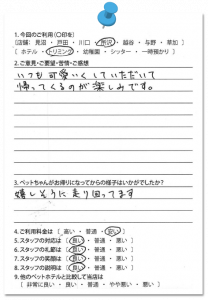 1.今回のご利用(〇印を)
[店舗: 見沼 ・ 戸田 ・ 川口 ・ 所沢 ・ 越谷 ・ 与野 ・ 草加 ]
[ ホテル ・ トリミング ・ 幼稚園 ・ シッター ・ 一時預かり ]
2.ご意見・ご要望・苦情・ご感想
いつも可愛いくしていただいて
帰ってくるのが楽しみです。
3.ペットちゃんがお帰りになってからの様子はいかがでしたか?
嬉しそうに走り回ってます
4.ご利用料金は [ 高い ・ 普通 ・ 安い ]
5.スタッフの対応は [ 良い ・ 普通 ・ 悪い ]
6.スタッフの礼節は [ 良い ・ 普通 ・ 悪い ]
7.スタッフの技術は [ 良い ・ 普通 ・ 悪い ]
8.スタッフの説明は [ 良い ・ 普通 ・ 悪い ]
9.他のペットホテルと比較して当店は
[ 非常に良い ・ 良い ・ 普通 ・ やや悪い ・ 悪い ]